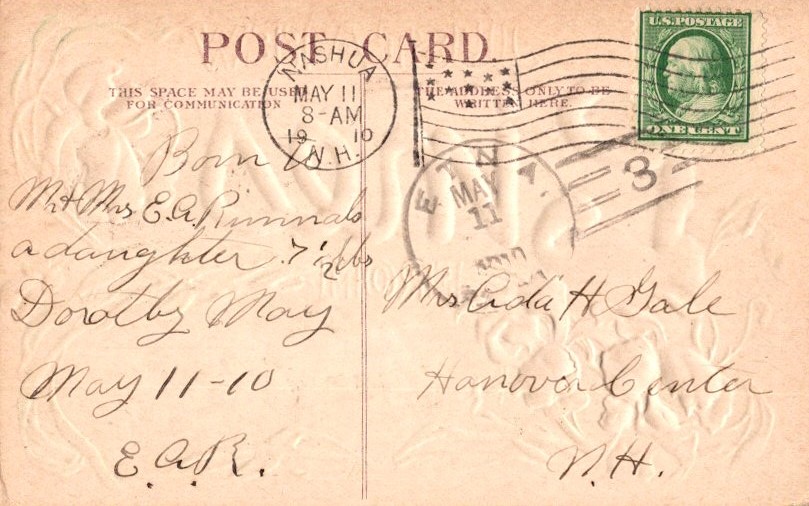 POST CARD.
THIS SPACE MAY BE USED
FOR COMMUNICATION
THE ADDRESS ONLY TO BE
WRITTEN HERE.
NASHUA
MAY 11
8-AM
1910
N.H.
U.S. POSTAGE
ONE CENT
ETNA.
MAY
11
1910
3
Born to
Mr & Mrs E.A.
a daughter 7 1/2 lbs
Dorothy May
May 11-10
E.A.R.
Mrs Ada H Gale
Hanover Center
N.H.